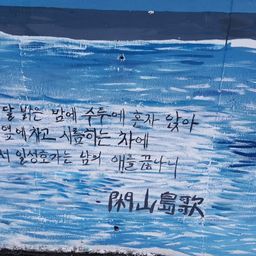 달 밝은 밤에 수루에 혼자 앉아
옆에 차고 시름하는 차에
서 일성호가는 남의 애를 끊나니
-閑山島歌